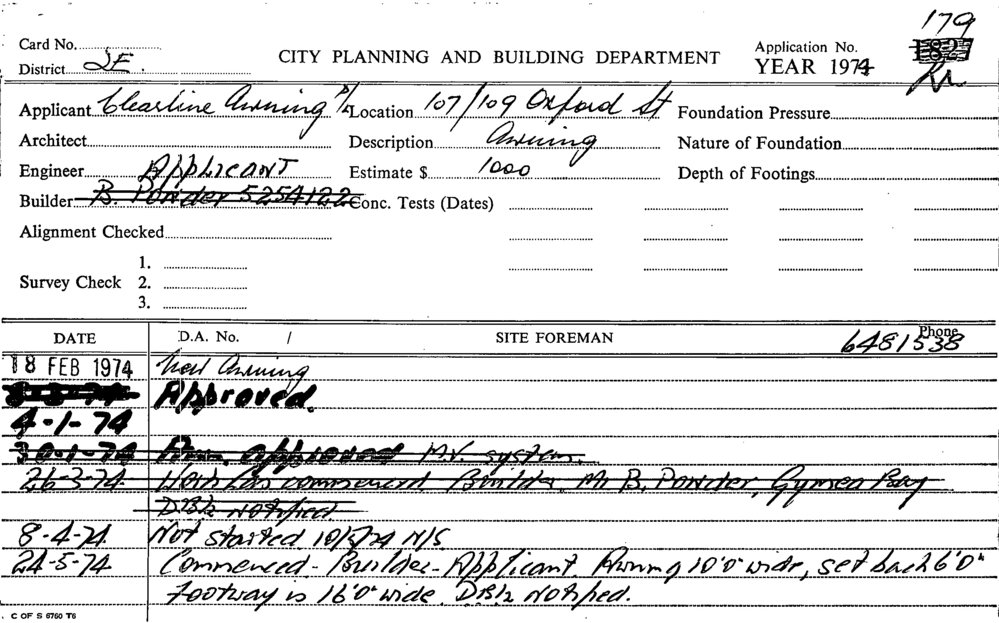 179
Card No. 1827
CITY PLANNING AND BUILDING DEPARTMENT Application No.
District 2E. YEAR 1974
Applicant Clearline Awning P/L Location 107/109 Oxford St Foundation Pressure
Architect Description Awning Nature of Foundation
Engineer Applicant Estimate $ 1000 Depth of Footings
Builder B. Powder 5254122 Conc. Tests (Dates)
Alignment Checked
1.
Survey Check 2.
3.
DATE D.A. No. / SITE FOREMAN Phone 6481538
18 FEB 1974 New Awning
Approved.
4-1-74
30-1-74 approved M.V. system.
26-3-74 Work has commenced. Builder. Mr B. Powder, Gymea Bay
D.B/2 Notified.
8-4-74. Not started 10/5/74 N/S.
24-5-74 Commenced - Builder - Applicant. Awning 10'0" wide, set back 6'0"
Footway is 16'0" wide. D.B/2 Notified.
C OF S 6760 T6